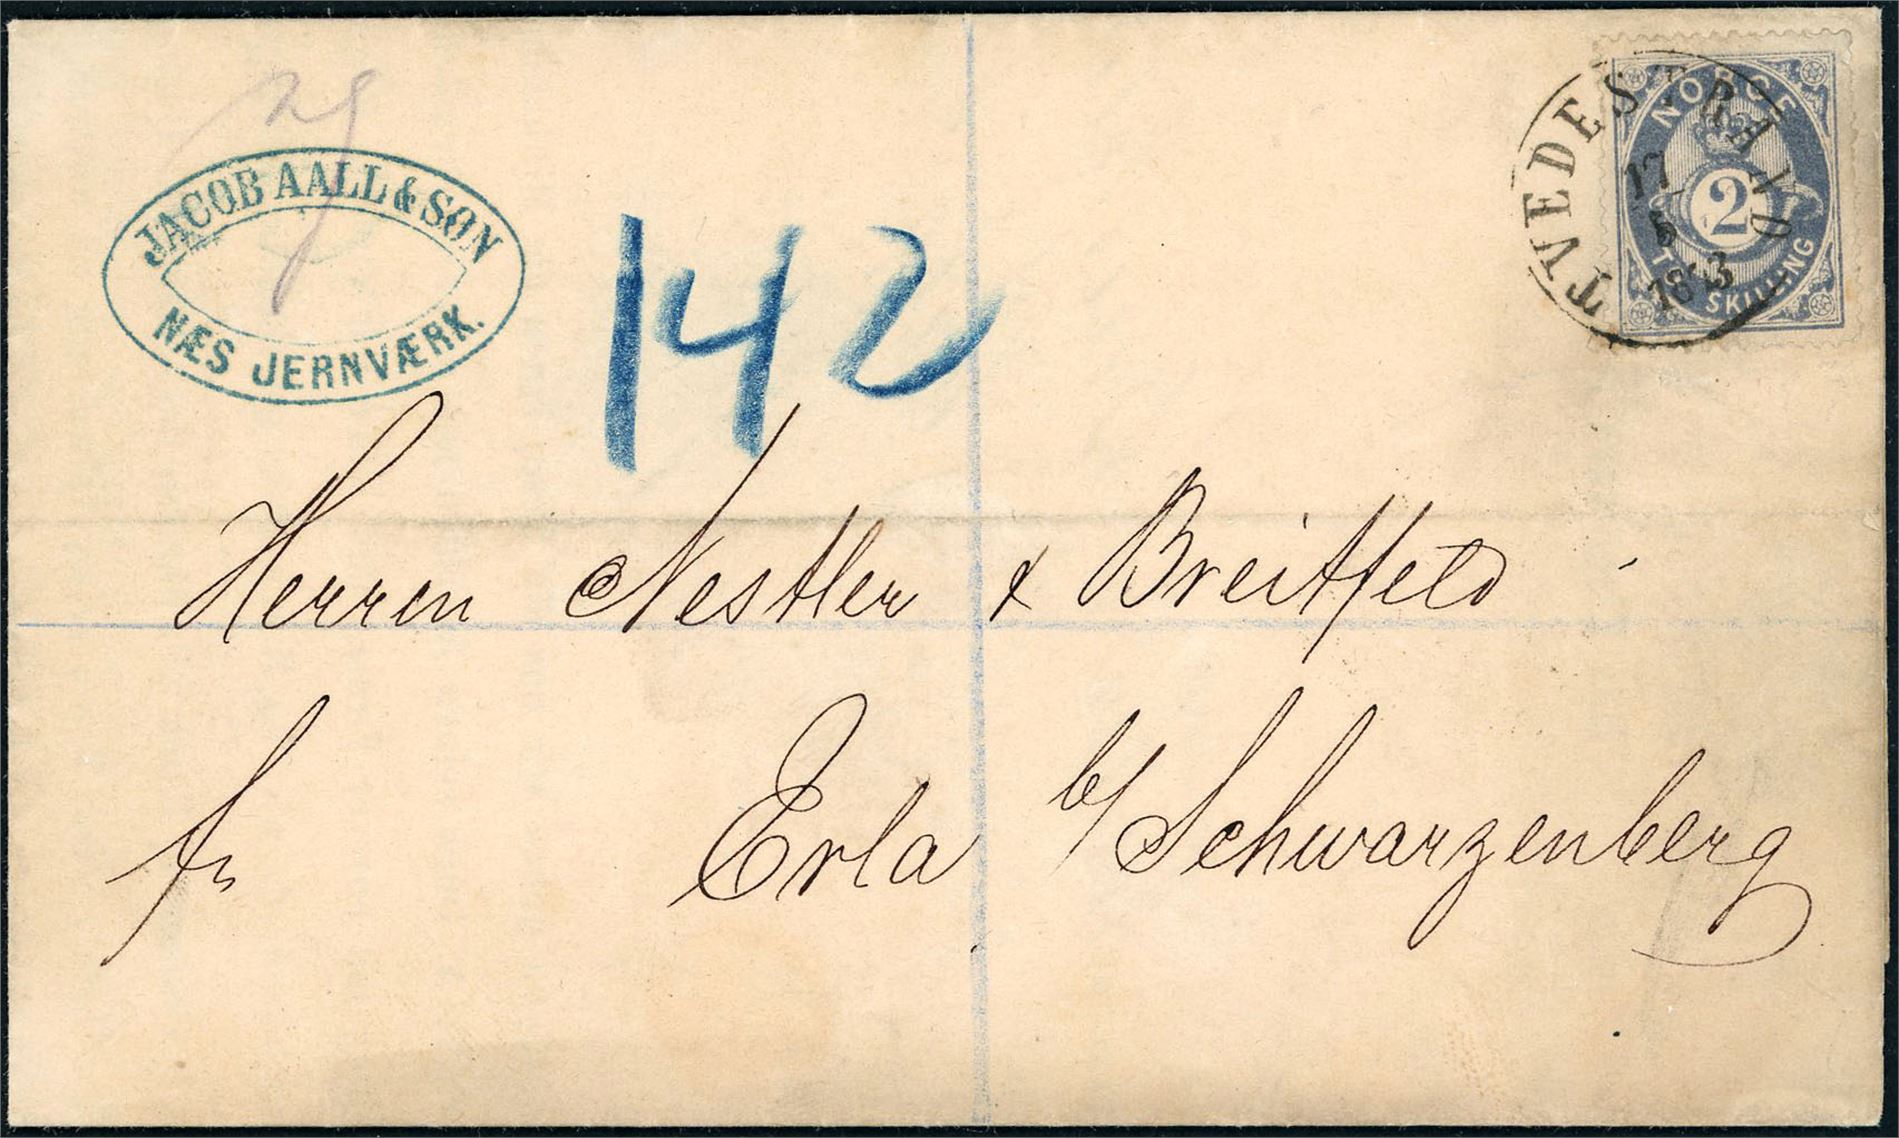 JACOB AALL & SØN
NÆS JERNVÆRK.
142
TVEDESTRAND
17
5
NORGE
2
TO SKILLING
Herren Nestler & Breitfeld
Erla b/ Schwarzenberg